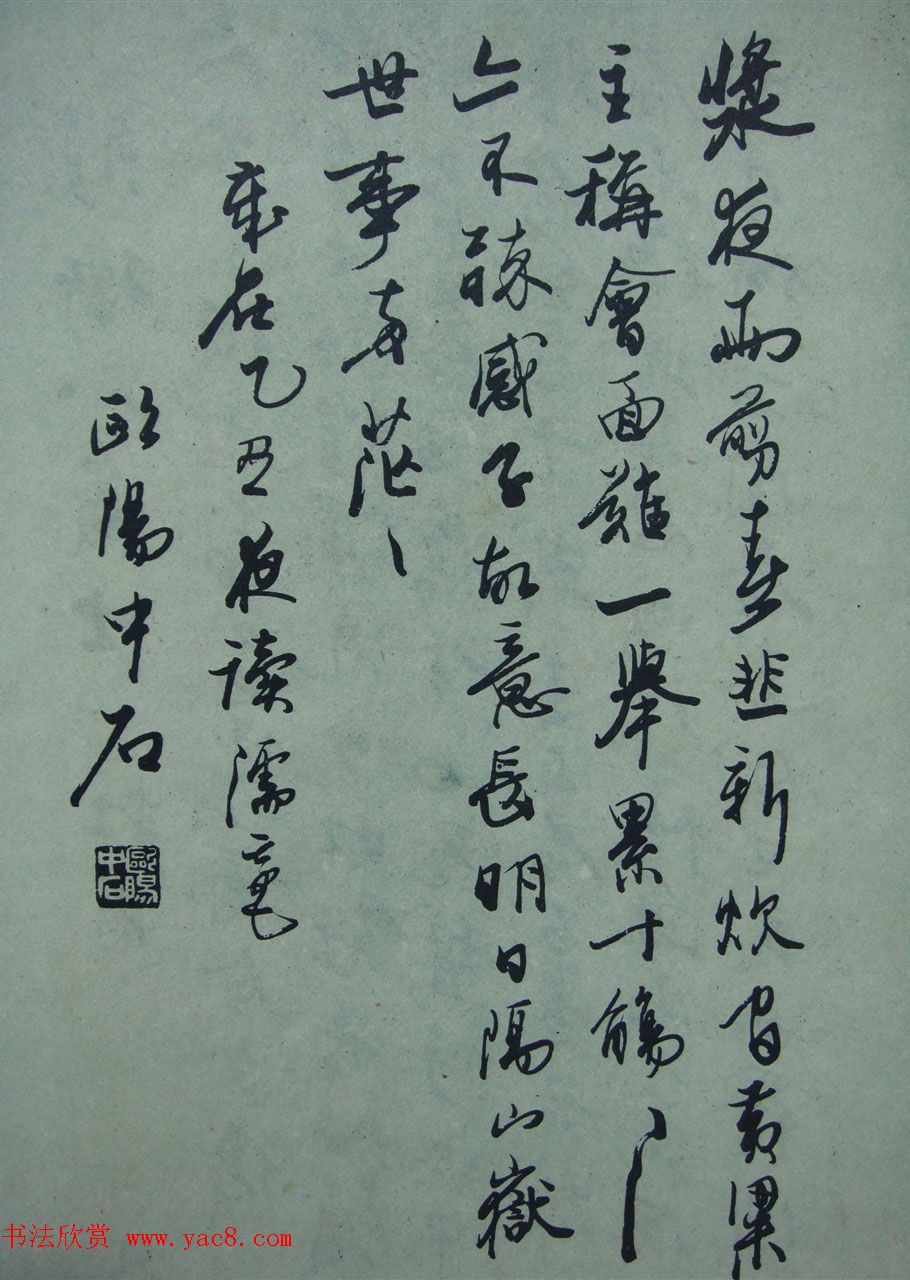 漿夜雨剪春韭新炊間黃粱
主稱會面難一舉累十觴
亦不醉感子故意長明日隔山嶽
世事兩茫々
歲在乙丑夜读濡毫
歐陽中石
歐陽中石
书法欣赏 www.yac8.com